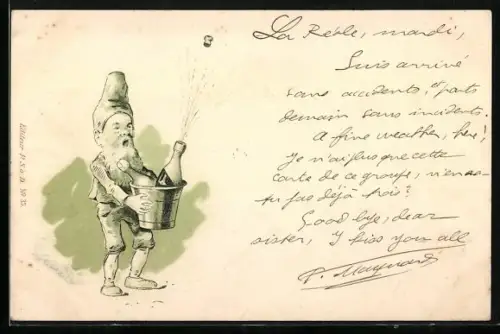 La Réole, mardi,
Suis arrivé
sans accidents, et parts
demain sans incidents.
A fine weather, here!
Je n'ai plus que cette
carte de ce groupe, n'en as-
tu pas déjà trois?
Good bye, dear
sister, I kiss you all